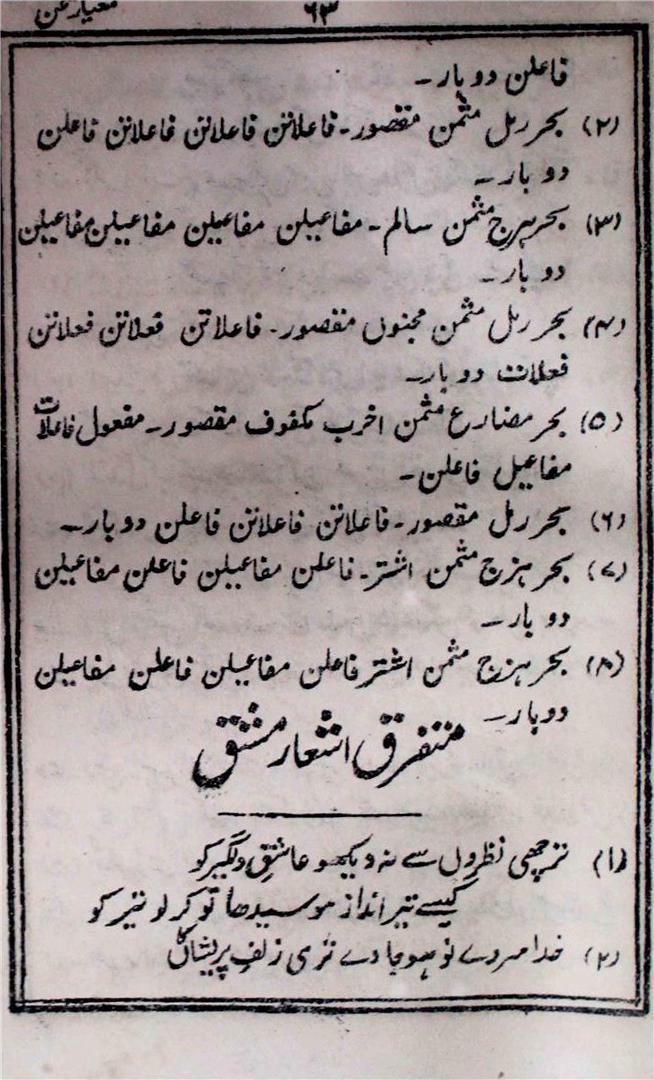 ۶۳
معیار سخن
فاعلن دو بار۔
(۲) بحر رمل مثمن مقصور۔ فاعلاتن فاعلاتن فاعلاتن فاعلن
دو بار۔
(۳) بحر ہزج مثمن سالم۔ مفاعیلن مفاعیلن مفاعیلن مفاعیلن
دو بار۔
(۴) بحر رمل مثمن مجنوں مقصور۔ فاعلاتن فعلاتن فعلاتن
فعلات دو بار۔
(۵) بحر مضارع مثمن اخرب مکفوف مقصور۔ مفعول فاعلات
مفاعیل فاعلن۔
(۶) بحر رمل مقصور۔ فاعلاتن فاعلاتن فاعلن دو بار۔
(۷) بحر ہزج مثمن اشتر۔ فاعلن مفاعیلن فاعلن مفاعیلن
دو بار۔
(۸) بحر ہزج مثمن اشتر فاعلن مفاعیلن فاعلن مفاعیلن
دو بار۔
متفرق اشعار مشق
(۱) ترچھی نظروں سے نہ دیکھو عاشقِ دلگیر کو
کیسے تیر انداز ہو سیدھا تو کر لو تیر کو
(۲) خدا سر دے تو سودا دے تری زلفِ پریشاں کا